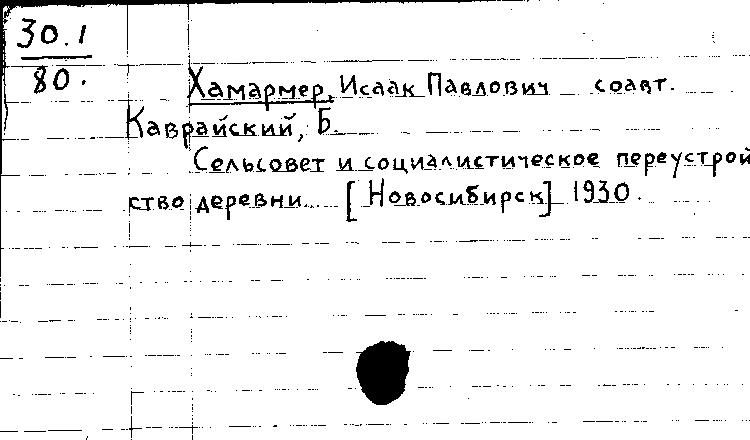 30.1
80.
Хамармер, Исаак Павлович соавт.
Каврайский, Б.
Сельсовет и социалистическое переустрой
ство деревни. [Новосибирск] 1930.